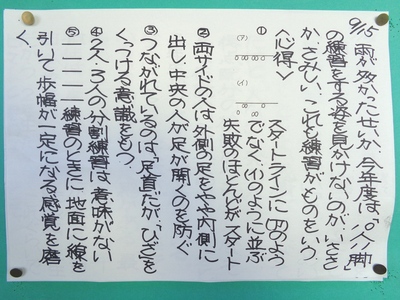 9/15 雨が多かったせいか、今年度は、「八人脚」
の練習をする姿を見かけないのが、いささ
か、さみしい。これも練習がものをいう。
〈心得〉
① スタートラインに(ア)のよう
でなく、(イ)のように並ぶ
失敗のほとんどが、スタート
(ア)
(イ)
② 両サイドの人は、外側の足をやや内側に
出し、中央の人が足が開くのを防ぐ
③ つながれているのは「足首」だが、「ひざ」を
くっつける意識をもつ。
④ 2人・3人の分割練習は、意味がない
⑤ 一一一一練習のときに、地面に線を
引いて、歩幅が一定になる感覚を磨
く。